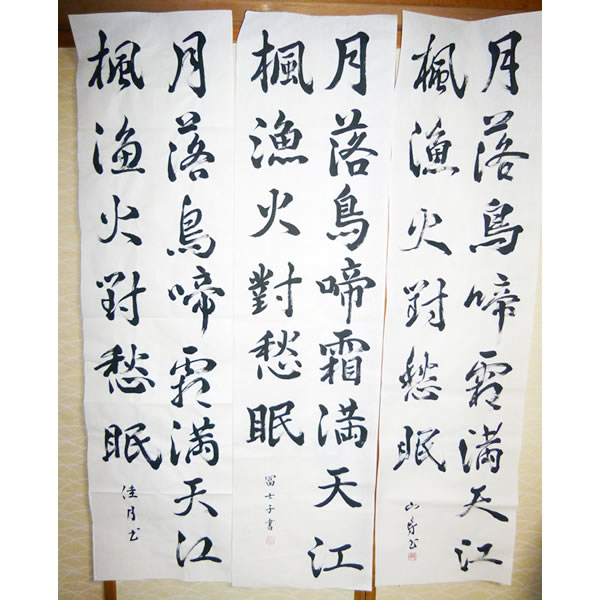 月落鳥啼霜満天江
楓漁火對愁眠
月落鳥啼霜満天江
楓漁火對愁眠
冨士子書
月落鳥啼霜満天江
楓漁火對愁眠
佳月書